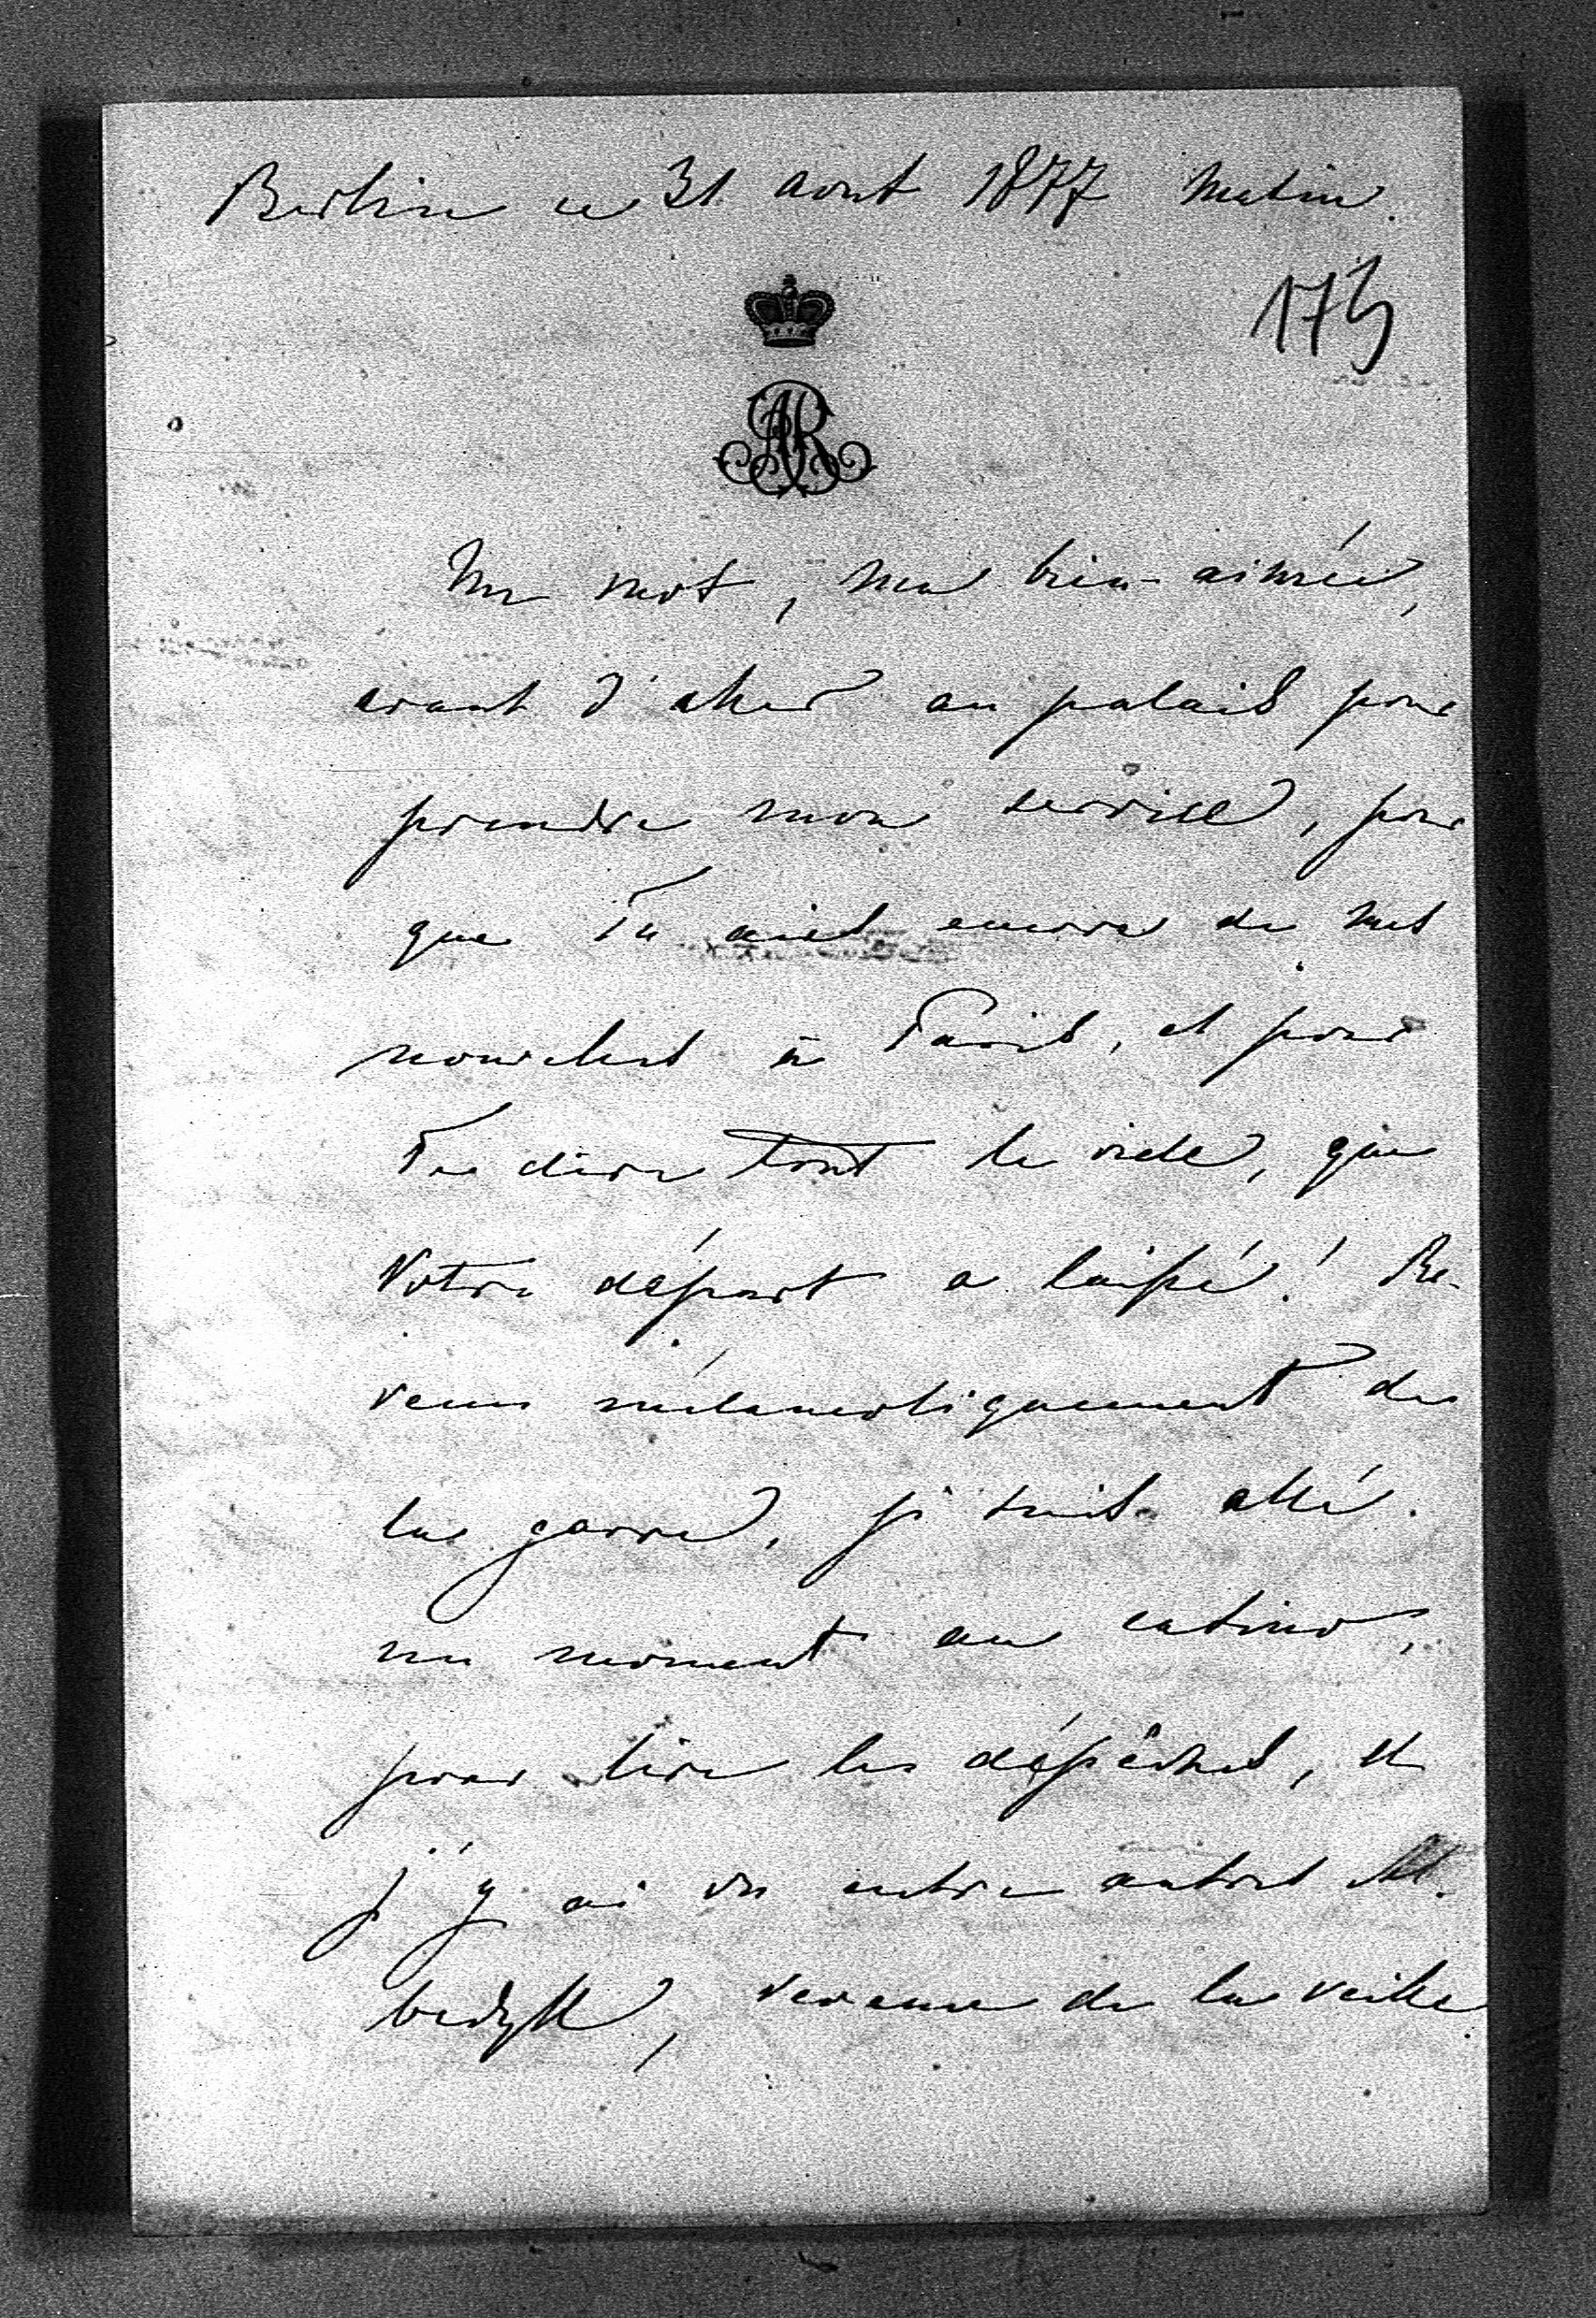 Berlin ce 31 aout 1877 matin.
173
AR
Un mot, ma bien-aimée,
avant d'aller au palais pour
prendre mon service, pour
que Tu aies encore de mes
nouvelles à Paris, et pour
Te dire tout le vide, que
Votre départ a laissé! Re-
venu mélancoliquement de
la garre, je suis allé
un moment au casino,
pour lire les dépêches, et
j'y ai vu entre autres
revenu de la veille